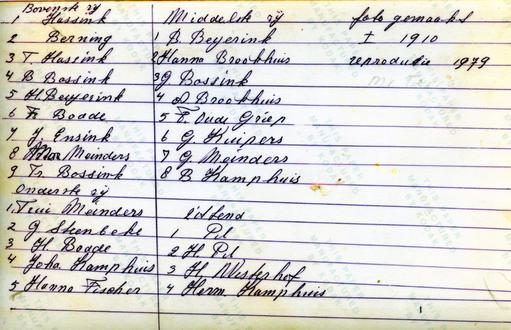 Bovenste rij
1 Hassink
2 Berning
3 T. Hassink
4 B Bossink
5 H Beyerink
6 Fr Bodde
7 J. Ensink
8 Meinders
9 Tr. Bossink
Onderste rij
1 Meinders
2 G Steenbeke
3 H. Bodde
4 Joha Kamphuis
5 Hanna Fischer
Middelste rij
1 B. Beyerink
2 Hanna Broekhuis
3 G Bossink
4 D Broekhuis
5 F. Oude Griep
6 G Kuipers
7 G Meinders
8 B Kamphuis
zittend
1 Pil
2 H Pil
3 H Westerhof
4 Herm Kamphuis
foto gemaakt
± 1910
reproductie 1979